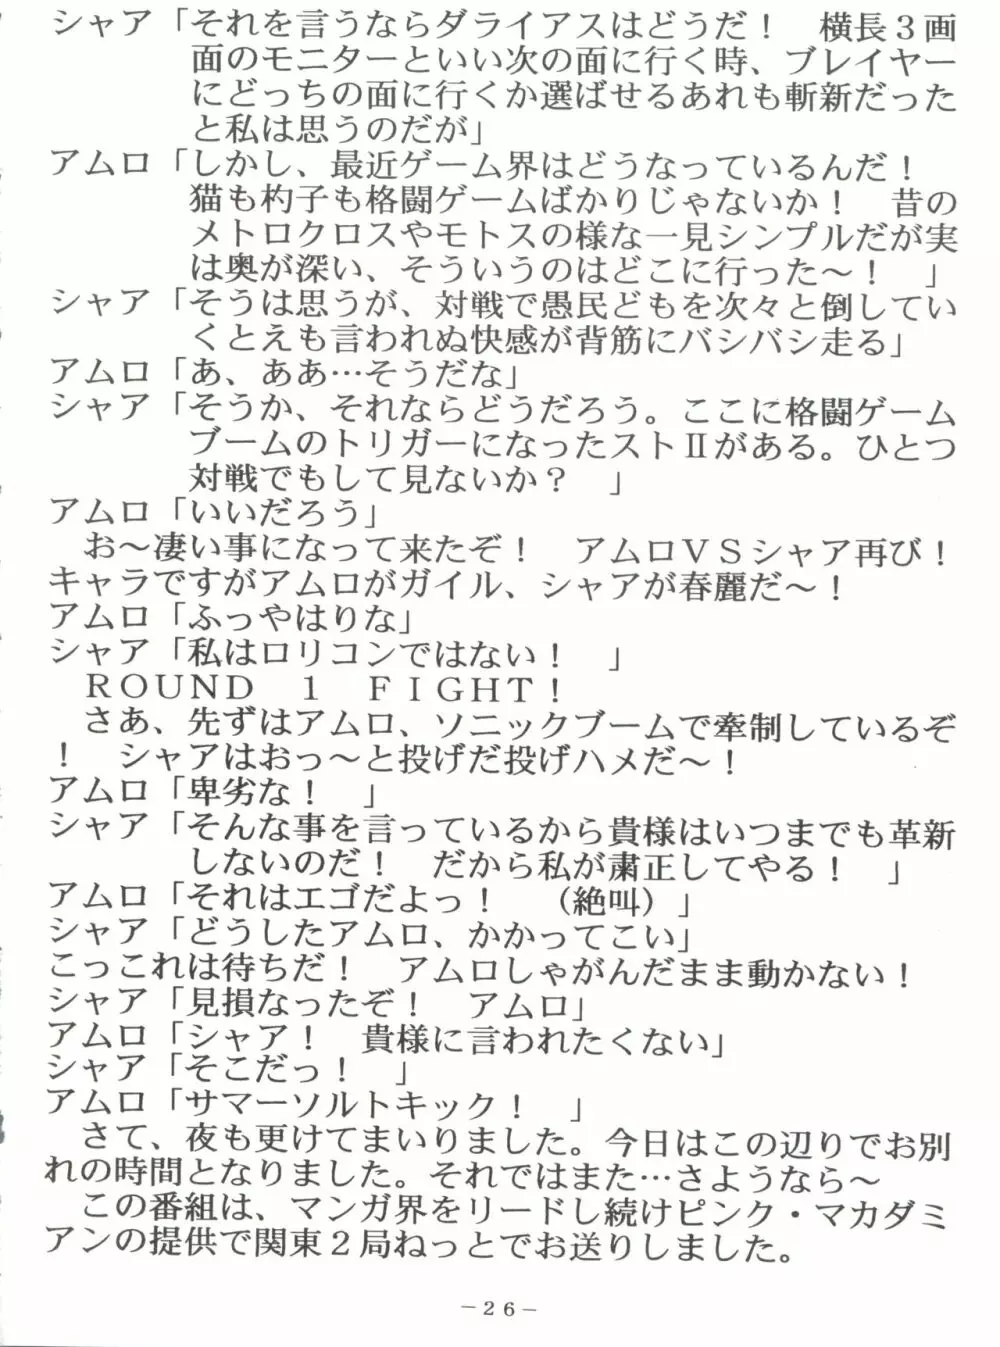 シャア「それを言うならダライアスはどうだ！　横長３画
面のモニターといい次の面に行く時、プレイヤー
にどっちの面に行くか選ばせるあれも斬新だった
と私は思うのだが」
アムロ「しかし、最近ゲーム界はどうなっているんだ！
猫も杓子も格闘ゲームばかりじゃないか！　昔の
メトロクロスやモトスの様な一見シンプルだが実
は奥が深い、そういうのはどこに行った～！　」
シャア「そうは思うが、対戦で愚民どもを次々と倒してい
くとえも言われぬ快感が背筋にバシバシ走る」
アムロ「あ、ああ…そうだな」
シャア「そうか、それならどうだろう。ここに格闘ゲーム
ブームのトリガーになったストⅡがある。ひとつ
対戦でもして見ないか？　」
アムロ「いいだろう」
　お～凄い事になって来たぞ！　アムロＶＳシャア再び！
キャラですがアムロがガイル、シャアが春麗だ～！
アムロ「ふっやはりな」
シャア「私はロリコンではない！　」
　ＲＯＵＮＤ　１　ＦＩＧＨＴ！
　さあ、先ずはアムロ、ソニックブームで牽制しているぞ
！　シャアはおっ～と投げだ投げハメだ～！
アムロ「卑劣な！　」
シャア「そんな事を言っているから貴様はいつまでも革新
しないのだ！　だから私が粛正してやる！　」
アムロ「それはエゴだよっ！　（絶叫）」
シャア「どうしたアムロ、かかってこい」
こっこれは待ちだ！　アムロしゃがんだまま動かない！
シャア「見損なったぞ！　アムロ」
アムロ「シャア！　貴様に言われたくない」
シャア「そこだっ！　」
アムロ「サマーソルトキック！　」
　さて、夜も更けてまいりました。今日はこの辺りでお別
れの時間となりました。それではまた…さようなら～
　この番組は、マンガ界をリードし続けピンク・マカダミ
アンの提供で関東２局ねっとでお送りしました。
－２６－